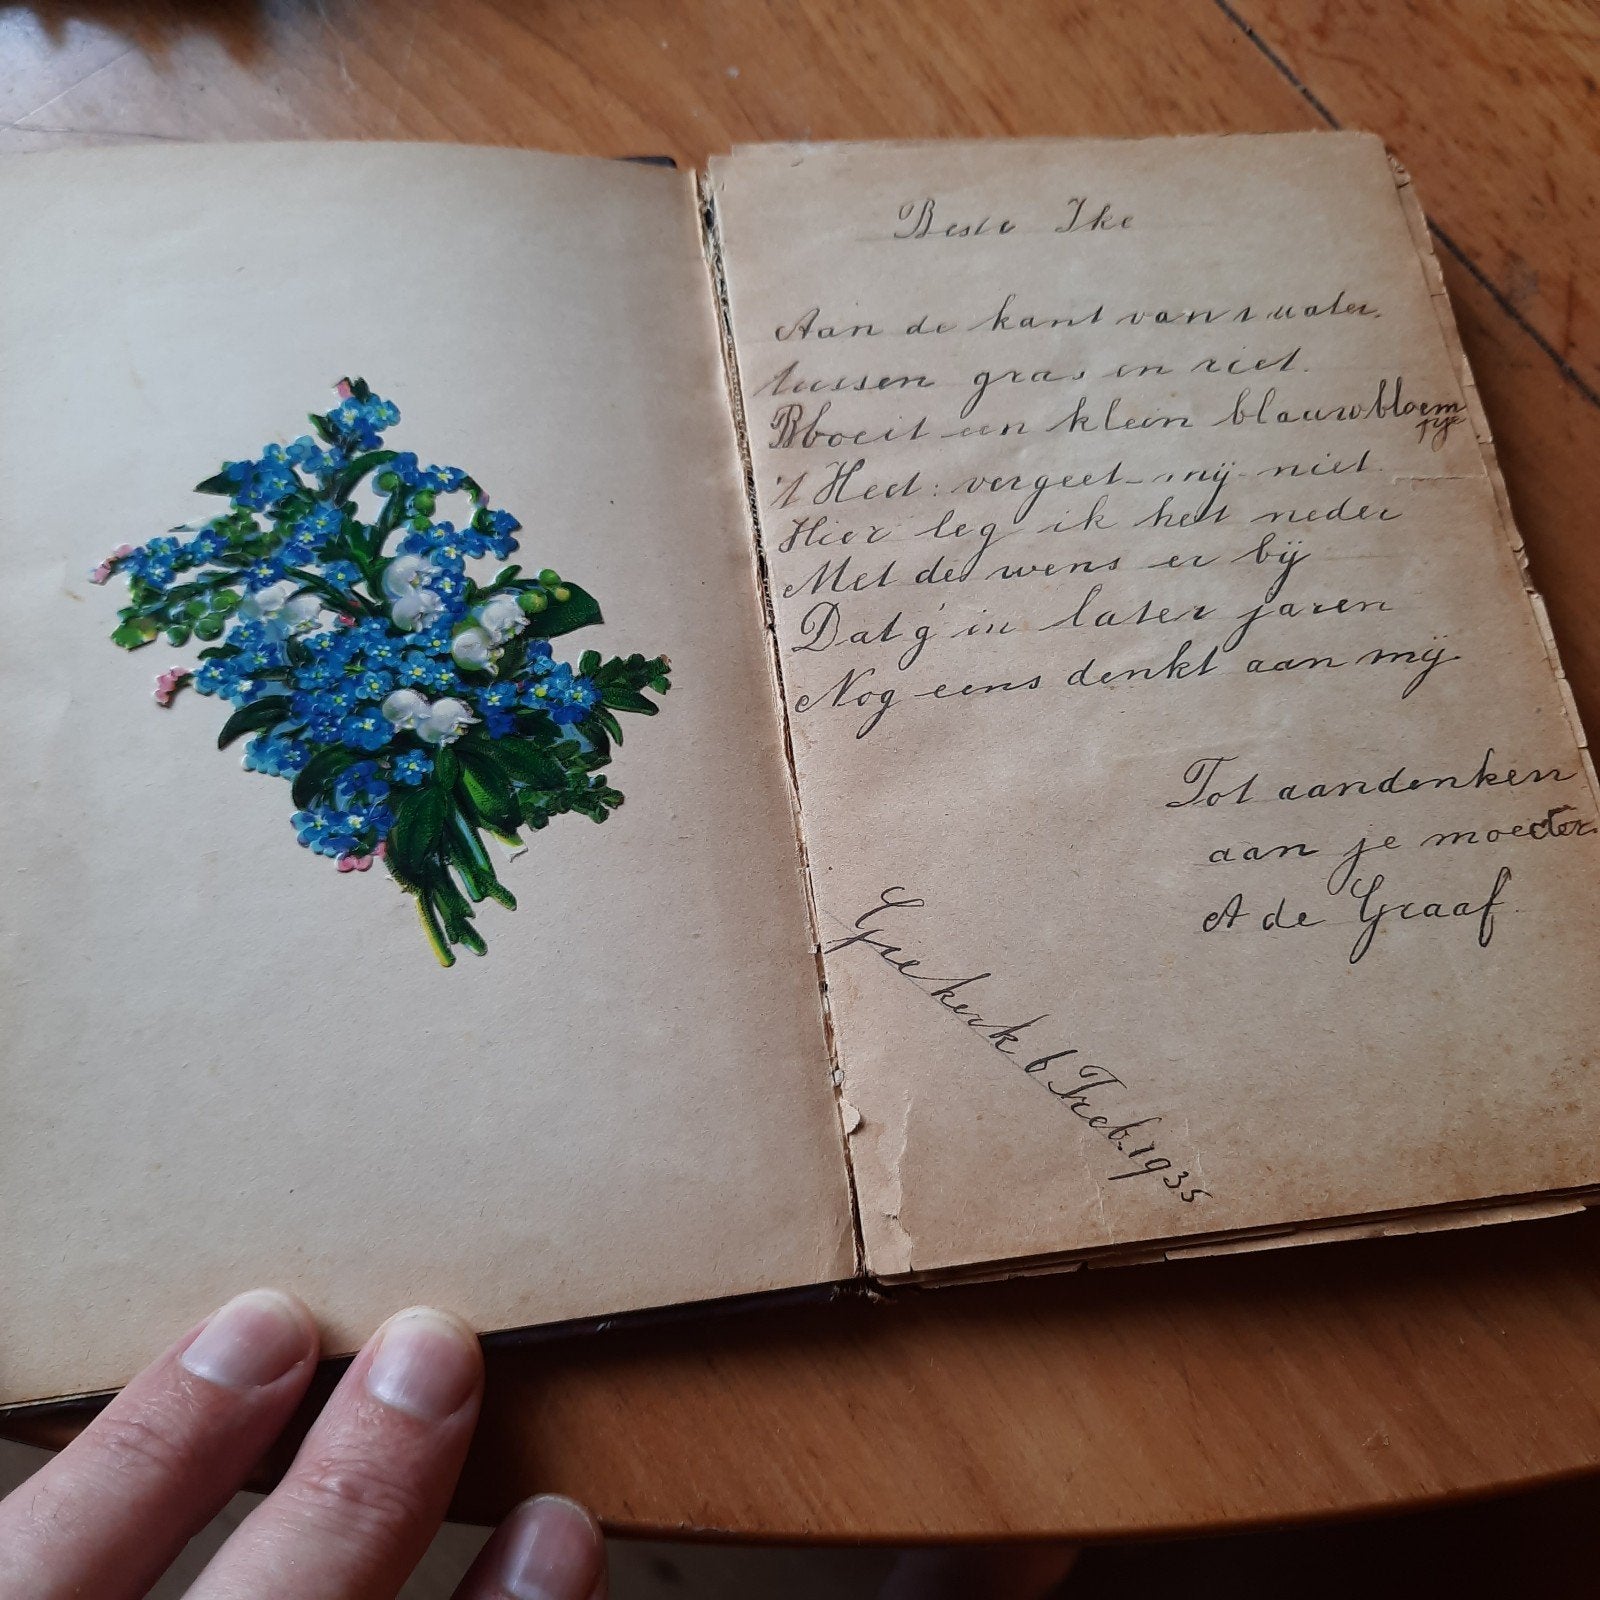 Beste Ike
Aan de kant van t water.
tussen gras en riet.
Bloeit een klein blauwbloem
tje
't Heet: vergeet-mij-niet.
Hier leg ik het neder
Met de wens er bij
Dat g' in later jaren
Nog eens denkt aan mij
Tot aandenken
aan je moeder
A de Graaf
Giekerk 6 Feb. 1935